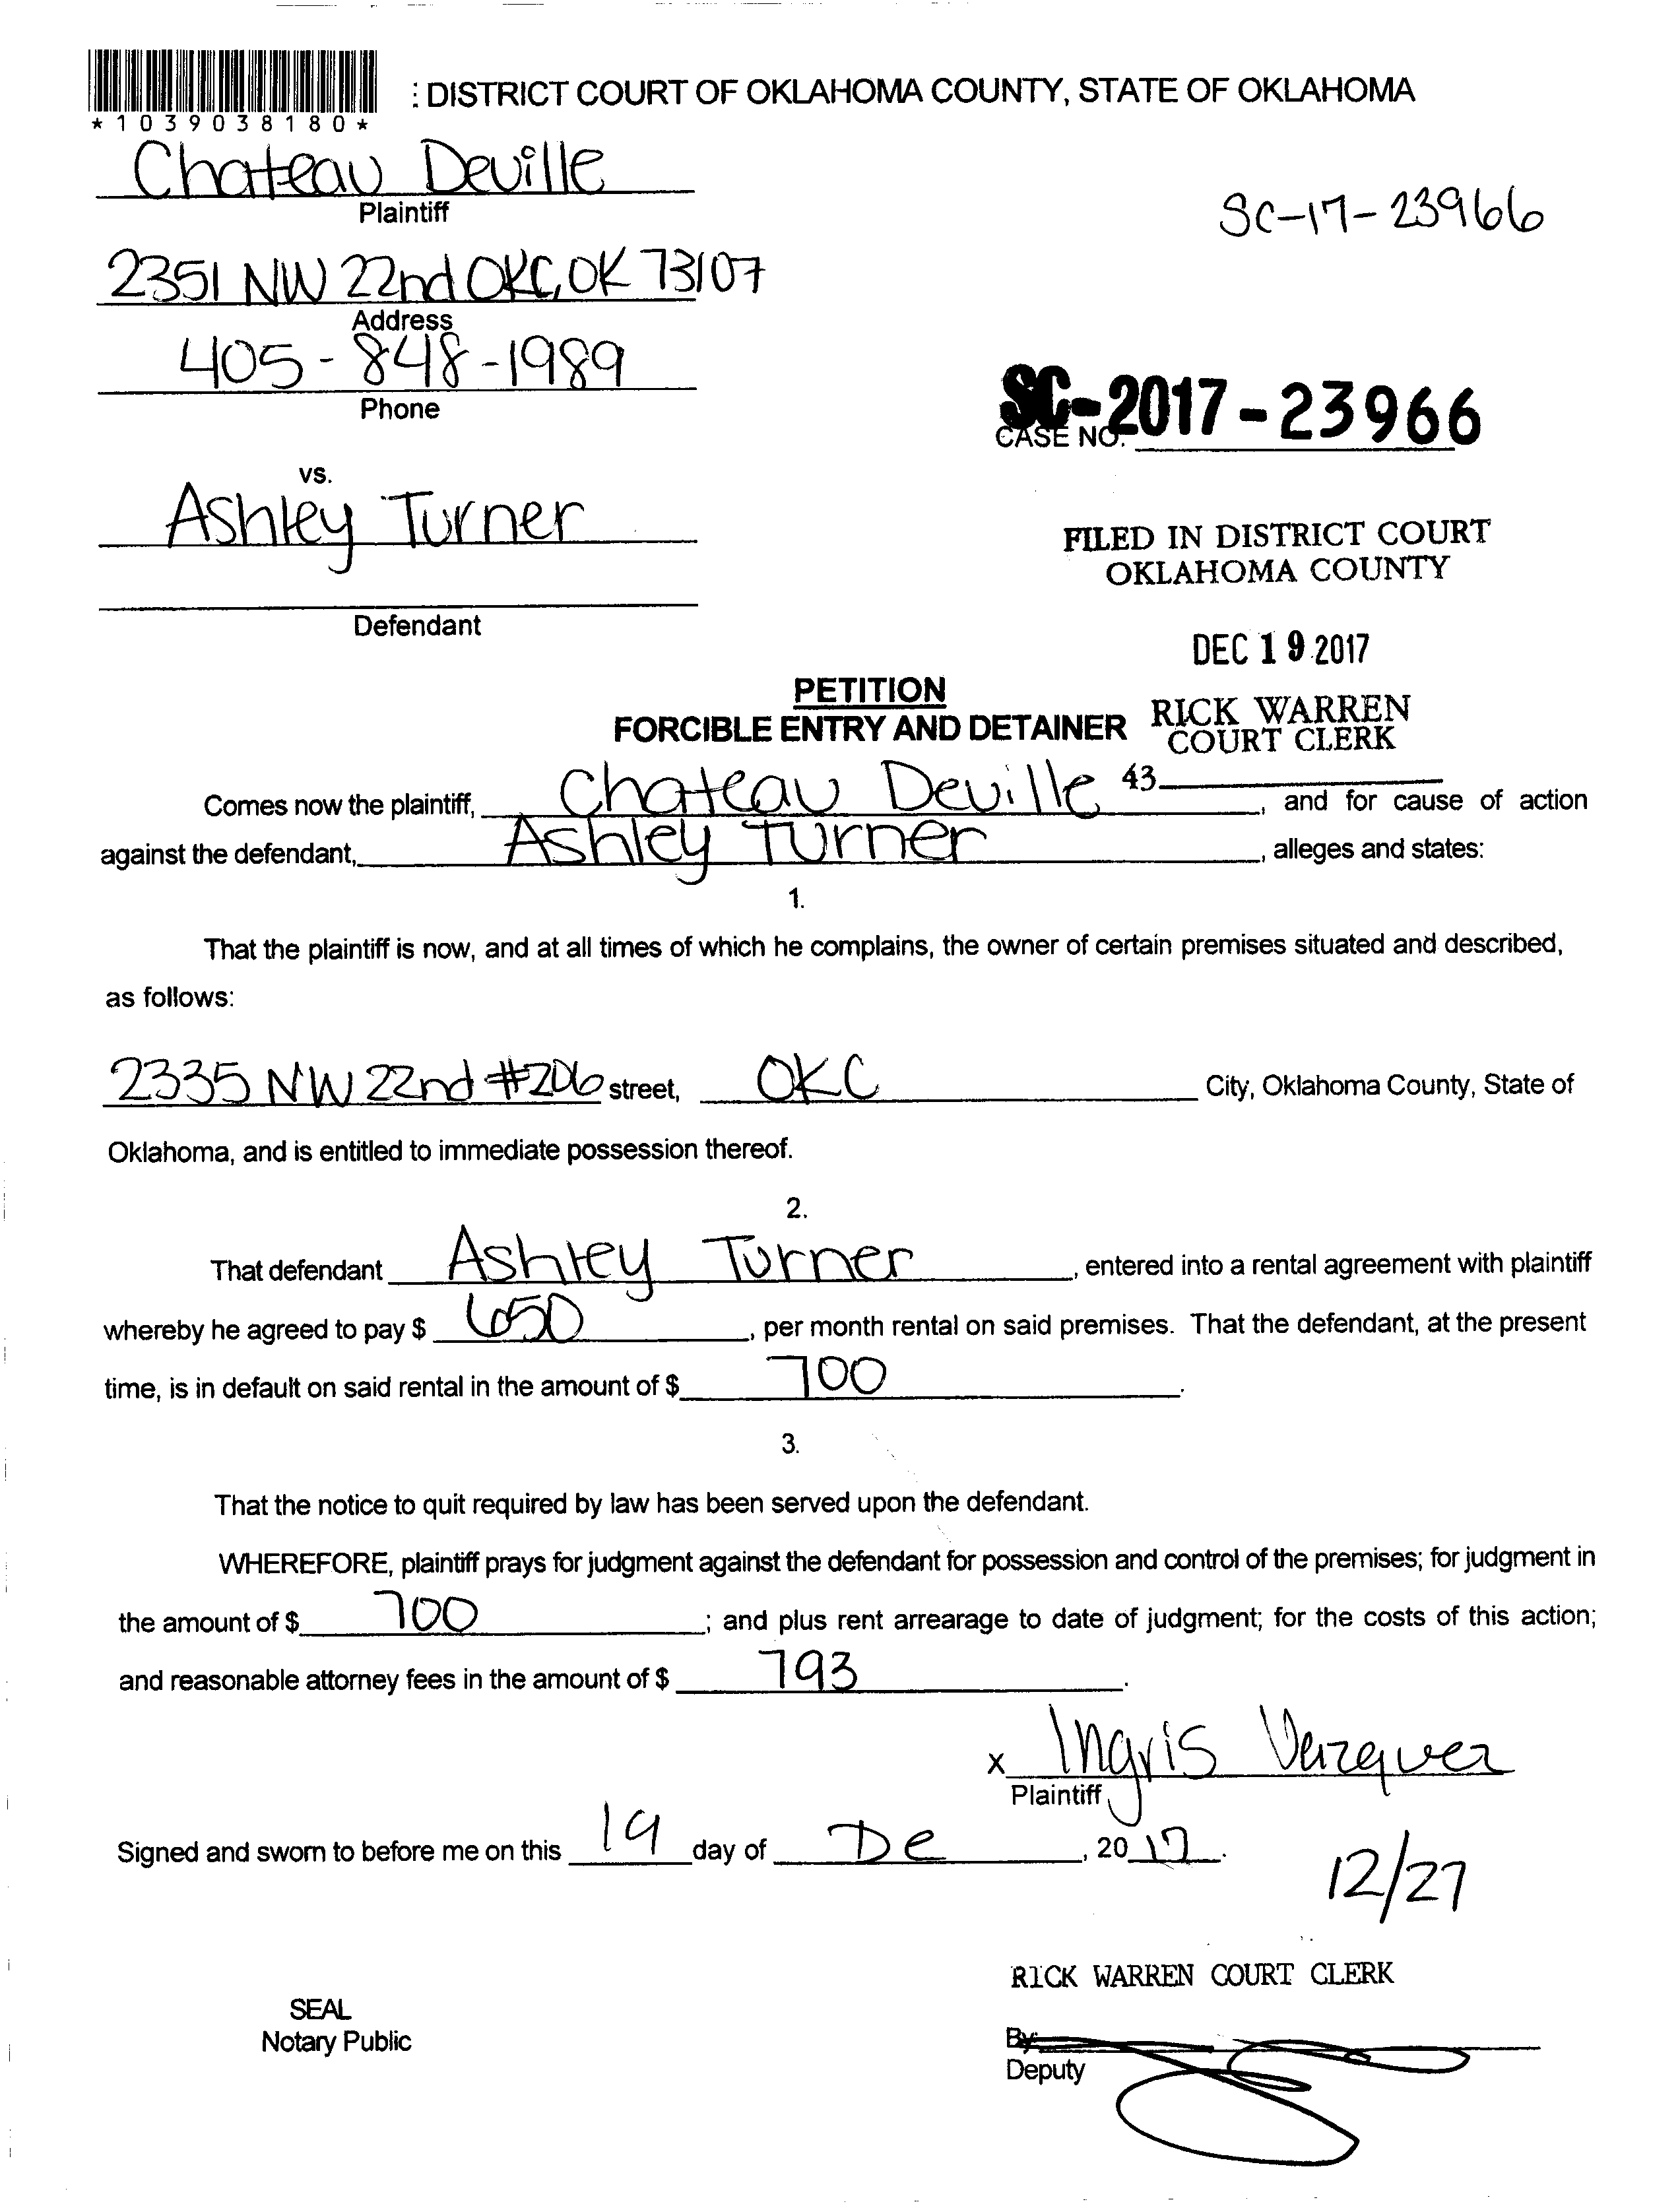 : DISTRICT COURT OF OKLAHOMA COUNTY, STATE OF OKLAHOMA
*1039038180*
Chateau Deville
Plaintiff
SC-17-23966
2351 NW 22nd OKC, OK 73107
Address
405-848-1989
Phone
SC-2017-23966
CASE NO.
vs.
Ashley Turner
FILED IN DISTRICT COURT
OKLAHOMA COUNTY
Defendant
DEC 19 2017
PETITION
FORCIBLE ENTRY AND DETAINER
RICK WARREN
COURT CLERK
43
Comes now the plaintiff, Chateau Deville, and for cause of action
against the defendant, Ashley Turner, alleges and states:
1.
That the plaintiff is now, and at all times of which he complains, the owner of certain premises situated and described,
as follows:
2335 NW 22nd #206 street, OKC City, Oklahoma County, State of
Oklahoma, and is entitled to immediate possession thereof.
2.
That defendant Ashley Turner, entered into a rental agreement with plaintiff
whereby he agreed to pay $ 650, per month rental on said premises. That the defendant, at the present
time, is in default on said rental in the amount of $ 700.
3.
That the notice to quit required by law has been served upon the defendant.
WHEREFORE, plaintiff prays for judgment against the defendant for possession and control of the premises; for judgment in
the amount of $ 700; and plus rent arrearage to date of judgment; for the costs of this action;
and reasonable attorney fees in the amount of $ 793.
x Ingris
Plaintiff
Signed and sworn to before me on this 19 day of De, 2017.
12/27
RICK WARREN COURT CLERK
SEAL
Notary Public
By:
Deputy